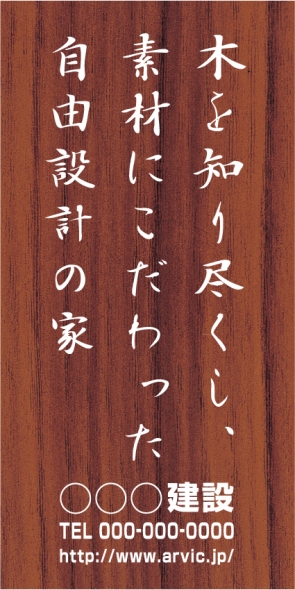 木を知り尽くし、
素材にこだわった
自由設計の家
○○○建設
TEL 000-000-0000
http://www.arvic.jp/